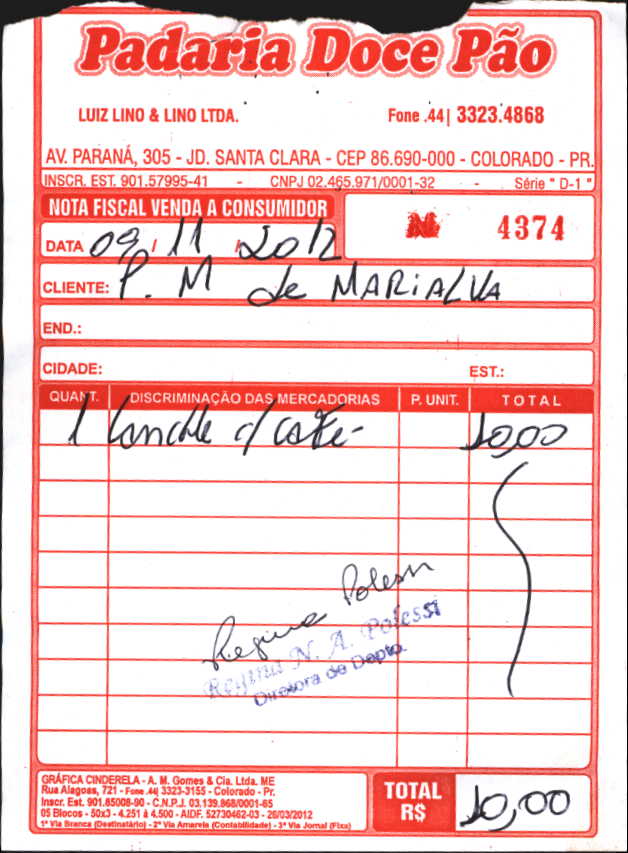 Padaria Doce Pão
LUIZ LINO & LINO LTDA. Fone .44| 3323.4868
AV. PARANÁ, 305 - JD. SANTA CLARA - CEP 86.690-000 - COLORADO - PR.
INSCR. EST. 901.57995-41 - CNPJ 02.465.971/0001-32 - Série " D-1 "
NOTA FISCAL VENDA A CONSUMIDOR
Nº 4374
DATA 09 / 11 / 2012
CLIENTE: P. M de MARiALVA
END.:
CIDADE: EST.:
QUANT. DISCRIMINAÇÃO DAS MERCADORIAS P. UNIT. TOTAL
1 Lanche c/ café- 10,00
Regina Polessi
Regina N. A. Polessi
Diretora de Depto.
GRÁFICA CINDERELA - A. M. Gomes & Cia. Ltda. ME
Rua Alagoas, 721 - Fone .44| 3323-3155 - Colorado - Pr.
Inscr. Est. 901.85008-90 - C.N.P.J. 03.139.868/0001-65
05 Blocos - 50x3 - 4.251 à 4.500 - AIDF. 52730462-03 - 26/03/2012
1ª Via Branca (Destinatário) - 2ª Via Amarela (Contabilidade) - 3ª Via Jornal (Fixa)
TOTAL
R$ 10,00